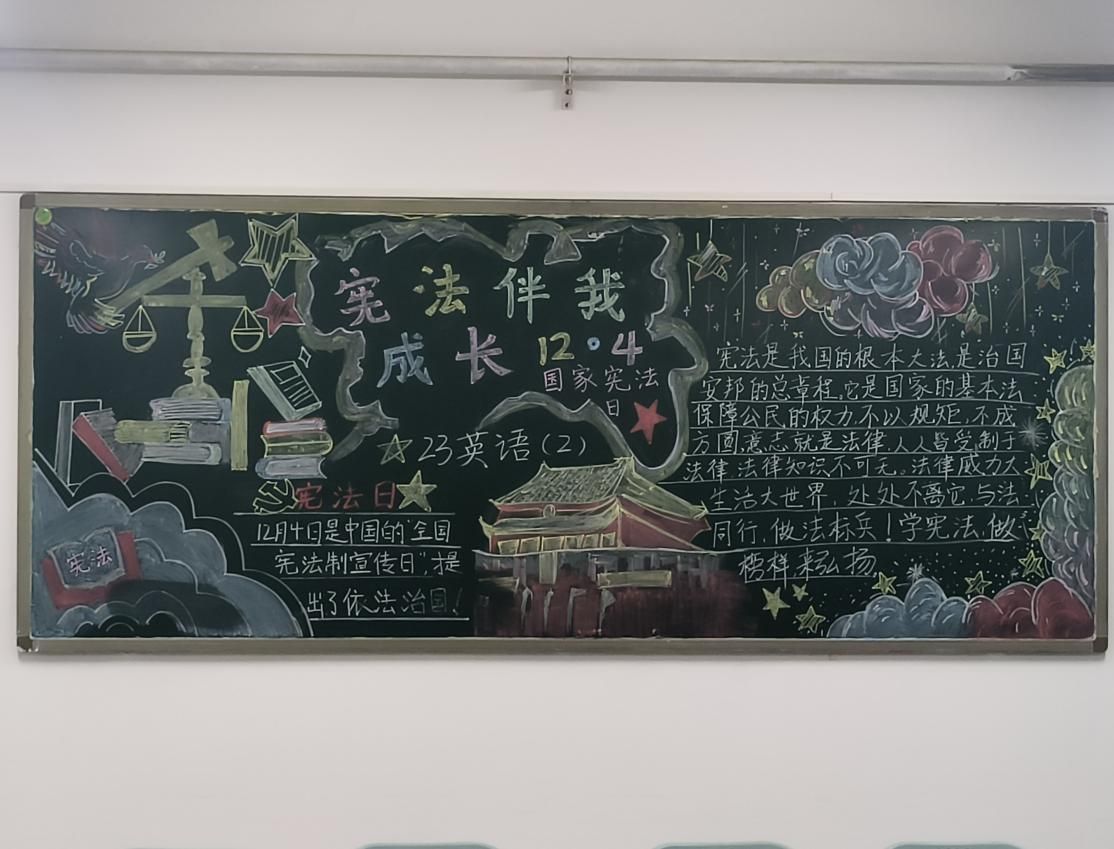 宪法伴我
成长 12·4
国家宪法
日
23英语(2)
宪法日
12月4日是中国的“全国
宪法制宣传日”,提
出了依法治国!
宪法
宪法是我国的根本大法,是治国
安邦的总章程。它是国家的基本法
保障公民的权力。不以规矩,不成
方圆意志就是法律,人人皆受制于
法律,法律知识不可无。法律威力大
生活大世界,处处不离它,与法
同行,做法标兵!学宪法,做
榜样来弘扬